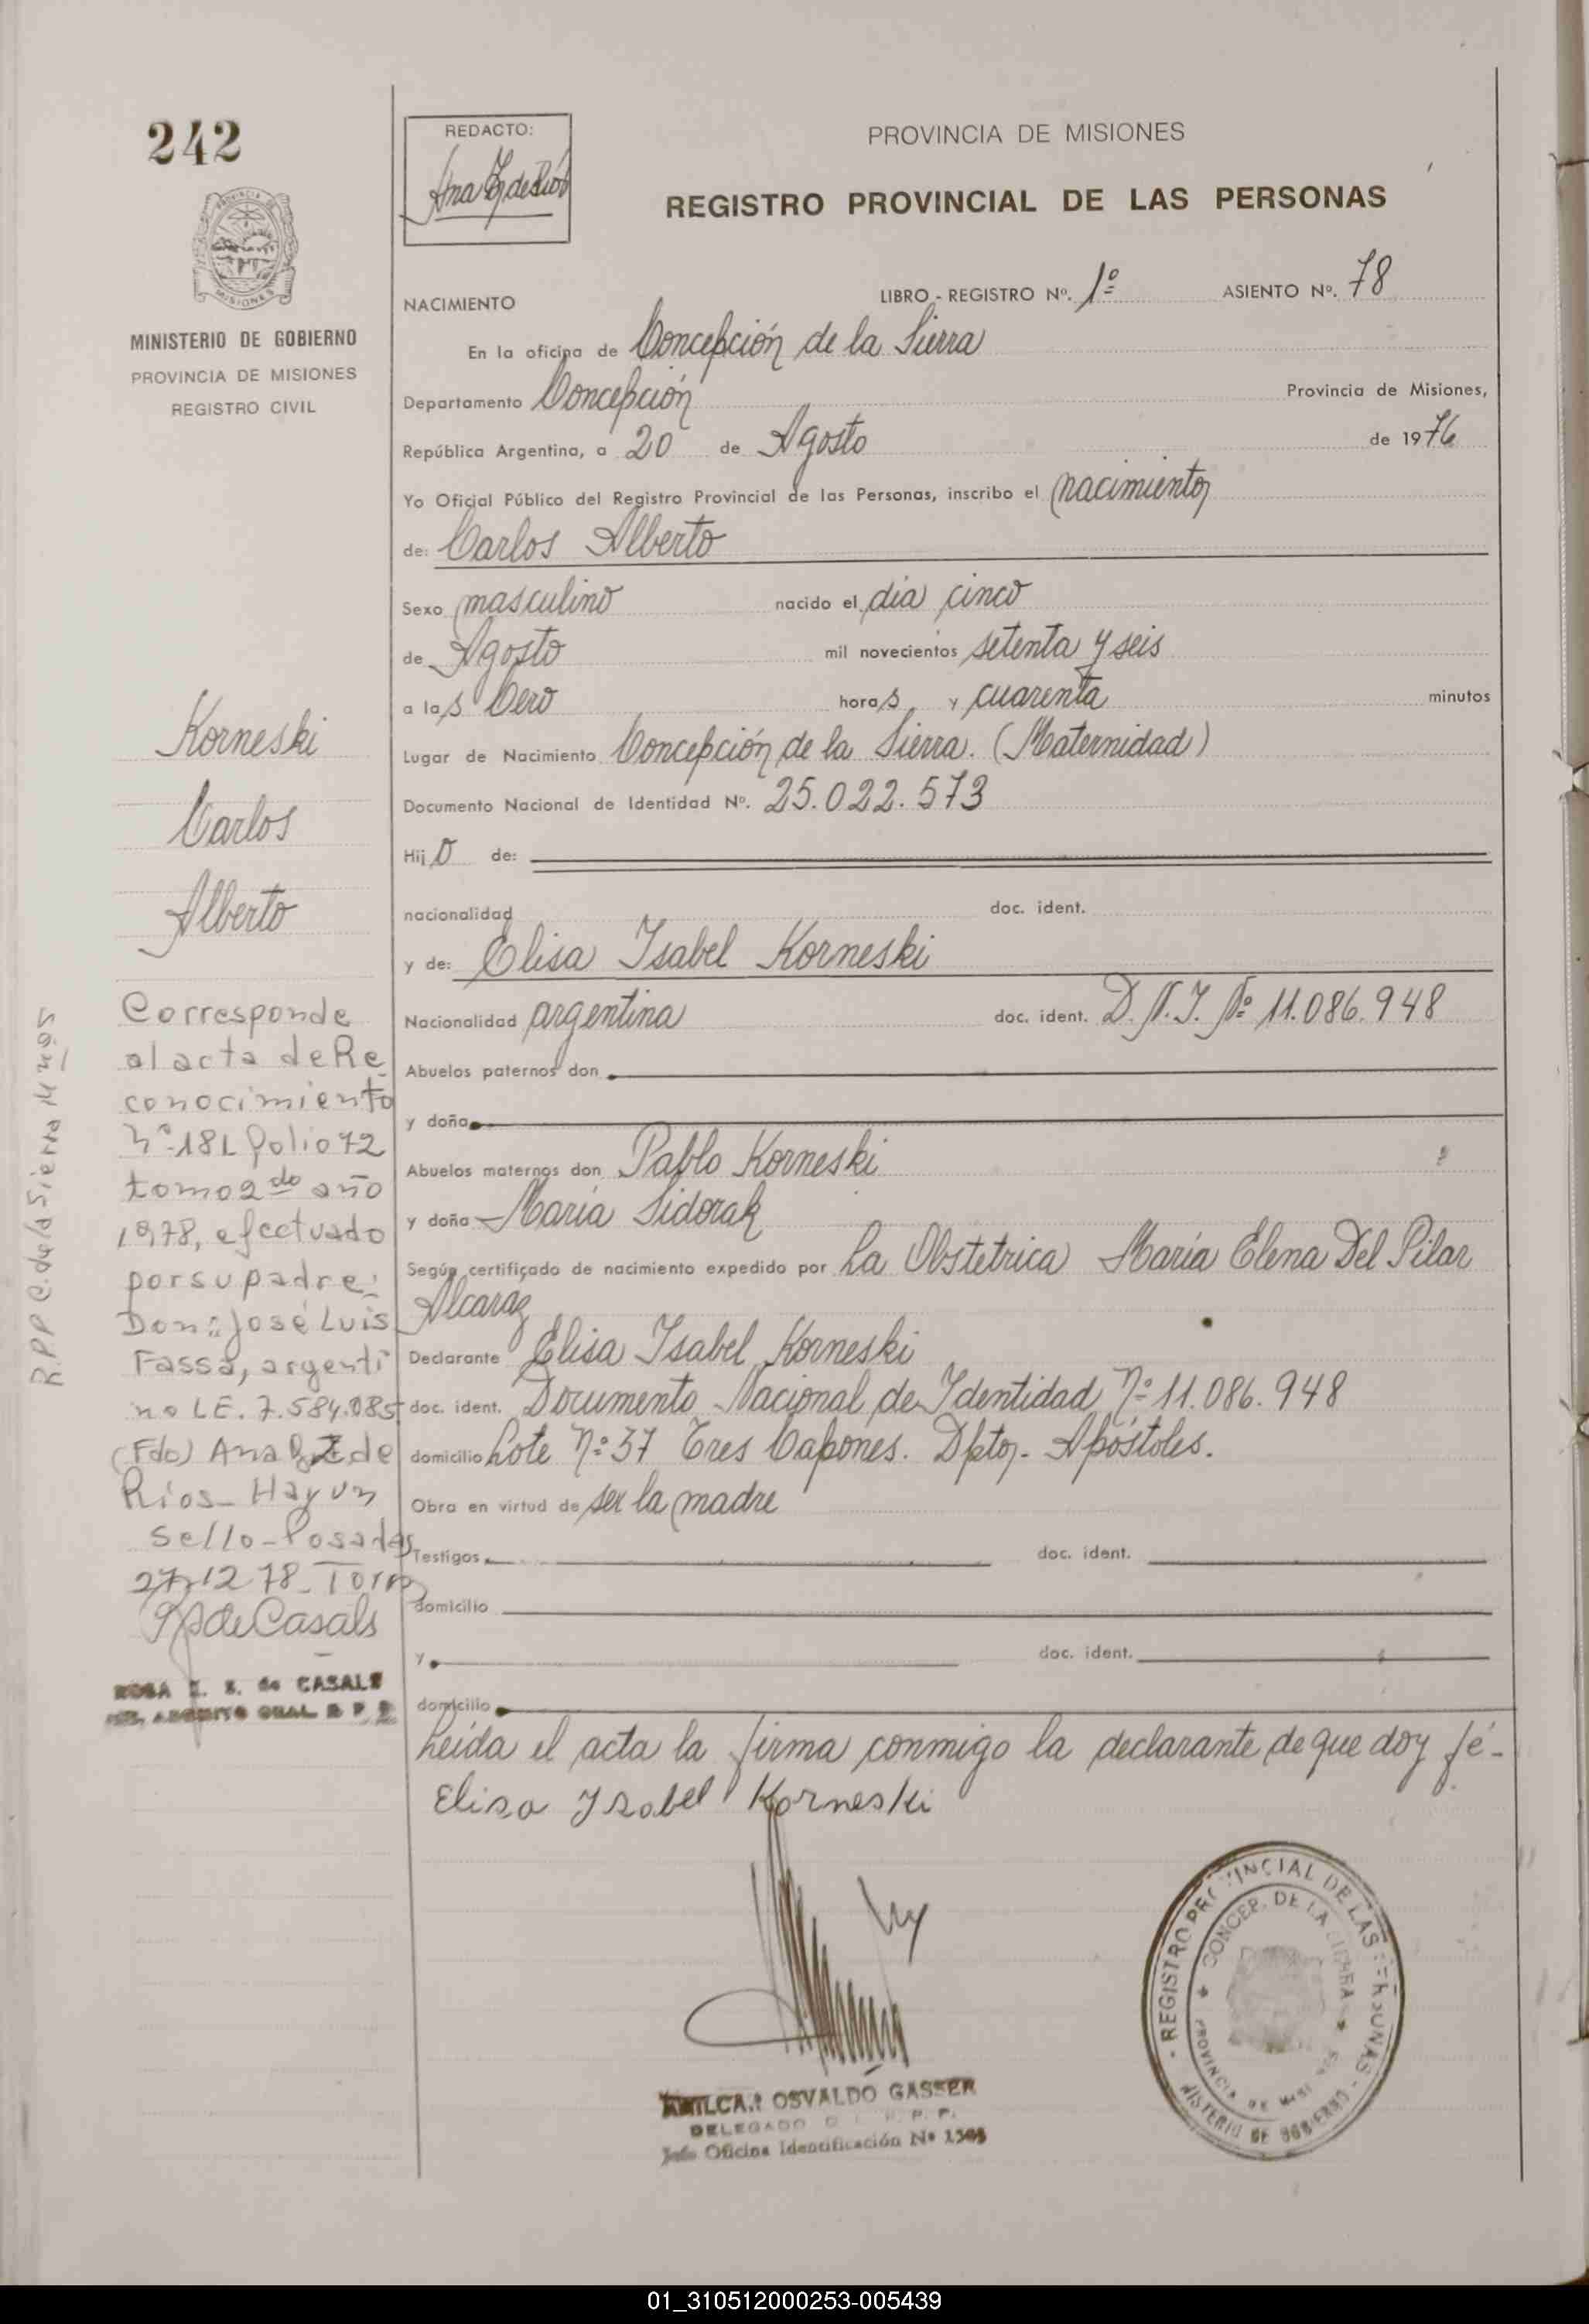 242
MISIONES
MINISTERIO DE GOBIERNO
PROVINCIA DE MISIONES
REGISTRO CIVIL
REDACTO:
PROVINCIA DE MISIONES
REGISTRO PROVINCIAL DE LAS PERSONAS
NACIMIENTO LIBRO - REGISTRO Nº. 1º ASIENTO Nº. 78
En la oficina de Concepción de la Sierra
Departamento Concepción Provincia de Misiones,
República Argentina, a 20 de Agosto de 1976
Yo Oficial Público del Registro Provincial de las Personas, inscribo el nacimiento
de: Carlos Alberto
Sexo masculino nacido el día cinco
de Agosto mil novecientos setenta y seis
a las Cero horas y cuarenta minutos
Lugar de Nacimiento Concepción de la Sierra. (Maternidad)
Documento Nacional de Identidad Nº. 25.022.573
Hijo de:
nacionalidad doc. ident.
y de: Elisa Isabel Korneski
Nacionalidad argentina doc. ident. D.N.I. Nº 11.086.948
Abuelos paternos don
y doña
Abuelos maternos don Pablo Korneski
y doña María Sidorak
Según certificado de nacimiento expedido por La Obstetrica María Elena Del Pilar
Alcaraz
Declarante Elisa Isabel Korneski
doc. ident. Documento Nacional de Identidad Nº 11.086.948
domicilio Lote Nº 37 Tres Capones. Dpto. Apóstoles.
Obra en virtud de ser la madre
Testigos doc. ident.
domicilio
y doc. ident.
domicilio
Leída el acta la firma conmigo la declarante de que doy fé-
Elisa Isabel Korneski
OSVALDO GASSER
DELEGADO
Jefe Oficina Identificación Nº
REGISTRO PROVINCIAL DE LAS PERSONAS
CONCEP. DE LA SIERRA
PROVINCIA DE MISIONES
MINISTERIO DE GOBIERNO
Korneski
Carlos
Alberto
Corresponde
al acta de Re
conocimiento
nº 181 folio 72
tomo 2do año
1978, efectuado
por su padre:
Don: José Luis
Fassa, argenti
no LE. 7.584.085
(Fdo) Ana de
Rios- Hay un
sello- Posadas
27-12-78-
de Casals
ROSA de CASALS
R.P.P C. de la Sierra
01_310512000253-005439